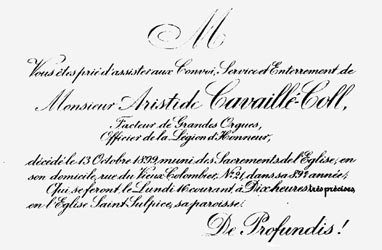 M
Vous êtes prié d'assister aux Convoi, Service et Enterrement de
Monsieur Aristide Cavaillé-Coll,
Facteur de Grandes Orgues,
Officier de la Légion d'Honneur,
décédé le 13 Octobre 1899, muni des Sacrements de l'Eglise, en
son domicile, rue du Vieux Colombier, No 21, dans sa 89e année;
Qui se feront, le Lundi 16 courant, à Dix heures très précises,
en l'Eglise Saint Sulpice, sa paroisse.
De Profundis!